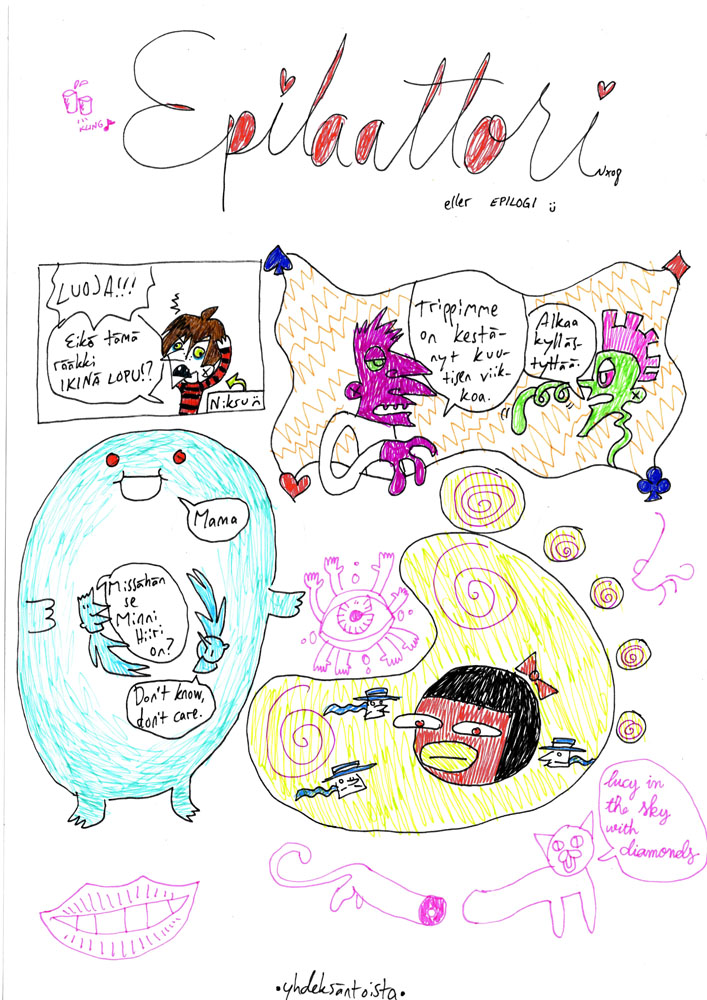 Epilaattori
eller EPILOGI
KLING
LUOJA!!!
Eikö tämä
rääkki
IKINÄ LOPU!?
Niksu
Trippimme
on kestä-
nyt kuu-
tisen viik-
koa.
Alkaa
kylläs-
tyttää.
Mama
Missähän
se
Minni
Hiiri
on?
Don't know,
don't care.
lucy in
the sky
with
diamonds
•yhdeksäntoista•